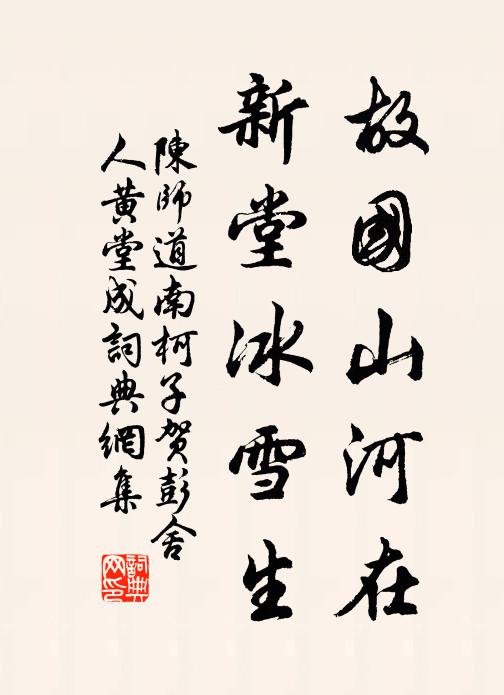 故國山河在
新堂冰雪生
陳師道南柯子賀彭舍
人黃堂成詞典網集
詞典
网印